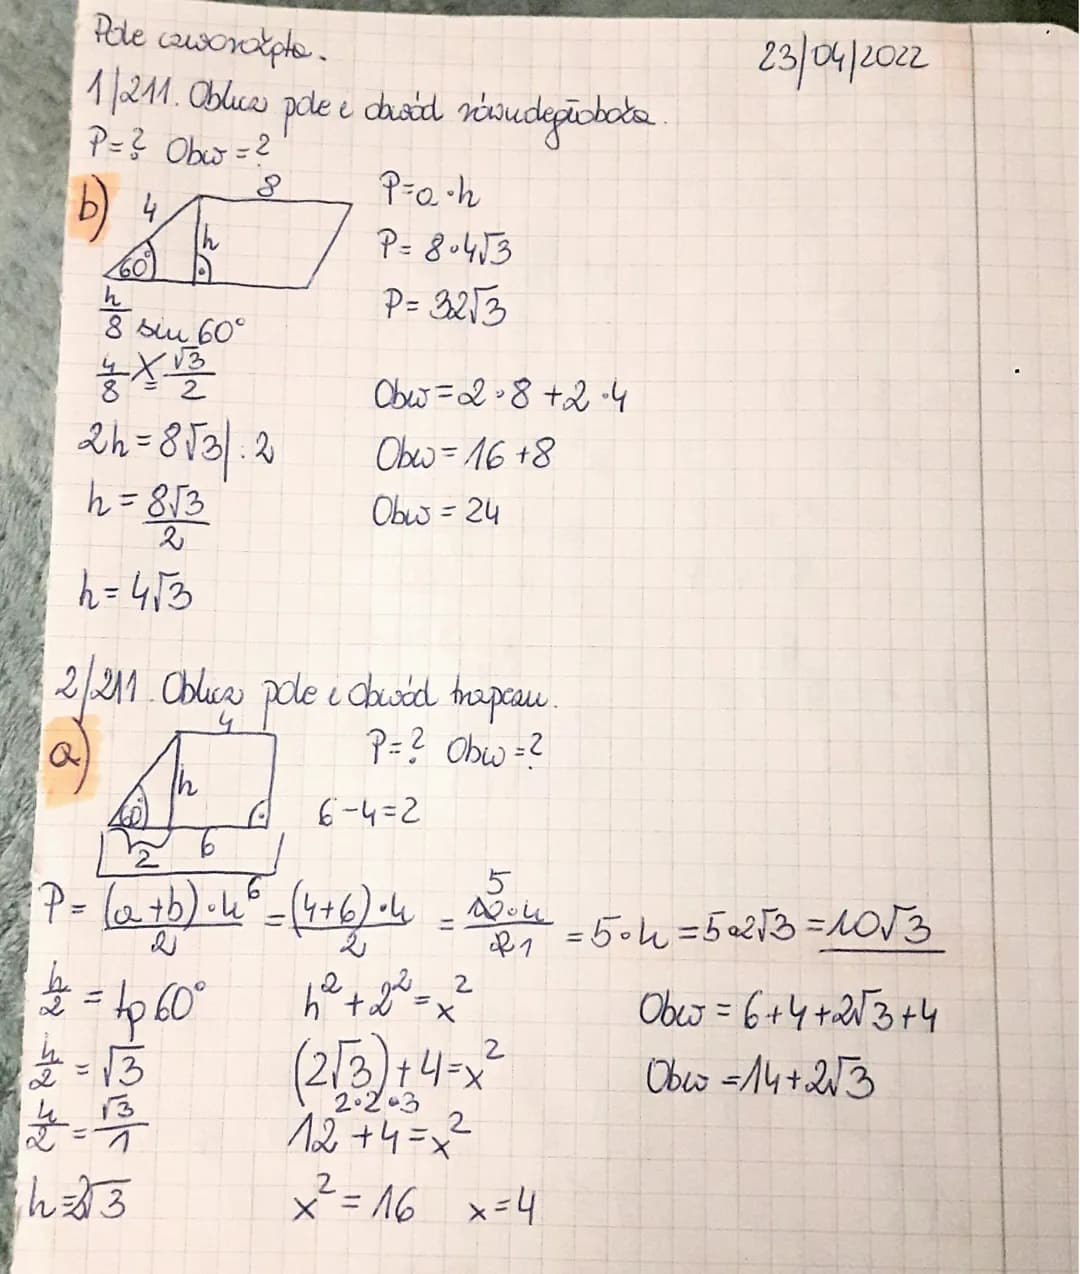 Pole czworokąta.
23/04/2022
1/211. Oblicz pole i obwód równoległoboku.
P=? Obw=?
b)
4
8
h
60°
P=a·h
P=8·4√3
P=32√3
h/8 sin 60°
4/8 = √3/2
2h=8√3 |:2
h=8√3/2
h=4√3
Obw=2·8+2·4
Obw=16+8
Obw=24
2/211. Oblicz pole i obwód trapezu.
a)
4
h
60°
2
6
P=? Obw=?
6-4=2
P=(a+b)·h/2=(4+6)·h/2=10·h/2=5·h=5·2√3=10√3
6
5
1
h/2=tg 60°
h/2=√3
h/2=√3/1
h=2√3
h²+2²=x²
(2√3)+4=x²
2·2·3
12+4=x²
x²=16 x=4
Obw=6+4+2√3+4
Obw=14+2√3